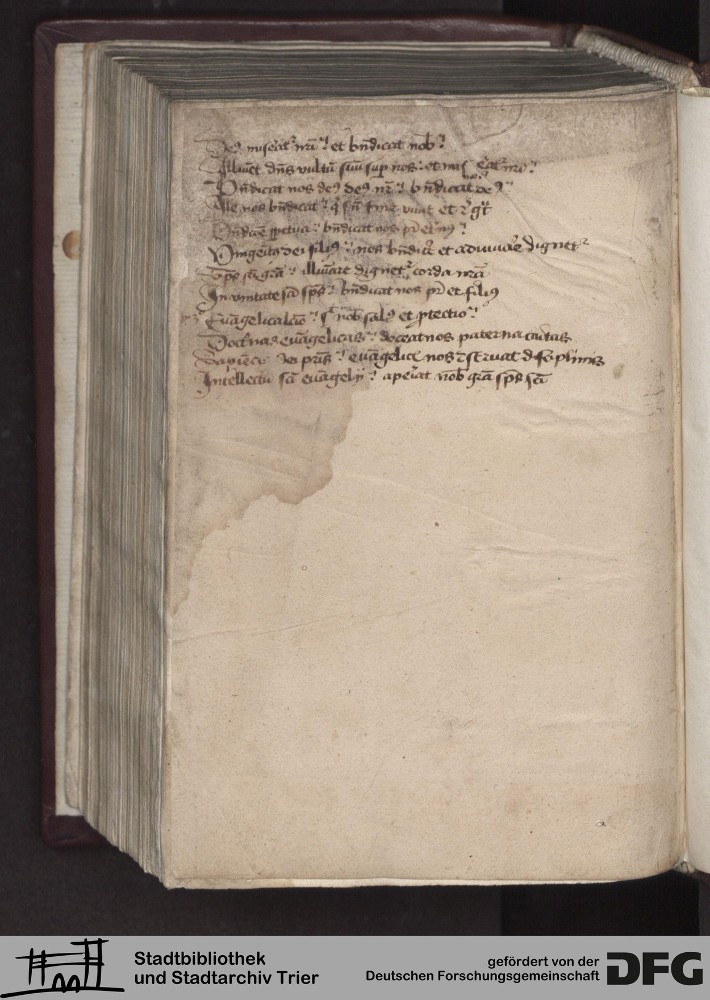 De9 miserat² nri ⁊ et bndicat nob
Illuīet dns vultū suū sup nos et mis nri
Bndicat nos de9 de9 nr bndicat de9
Ille nos bndicat q sn fine vivit et
bndicat nos pr
Vnigeīts dei fili9 nos bndicˀe et adiuuāe dignet²
sps sti grā illuīare dignet² corda nrā
In vnitate sci sps bndicat nos pr et fili9
Euāgelica lcīo sˀ nob sal9 et ptectio
Doctˀnas euāgelicas doceat nos paterna
Sapiēcia dei pris euāgelice nos īstruat
Intellectū sci euāgelij apeˀiat nob grā sps sci
Stadtbibliothek
und Stadtarchiv Trier
gefördert von der
Deutschen Forschungsgemeinschaft
DFG